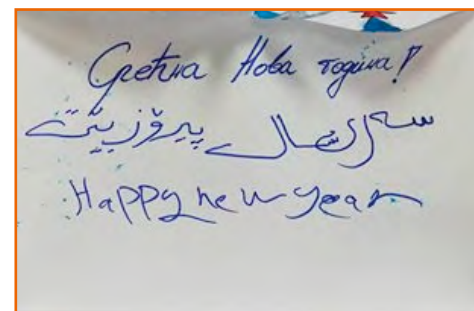 Срећна Нова година!
سەری ساڵ پیرۆز بێت
Happy new year